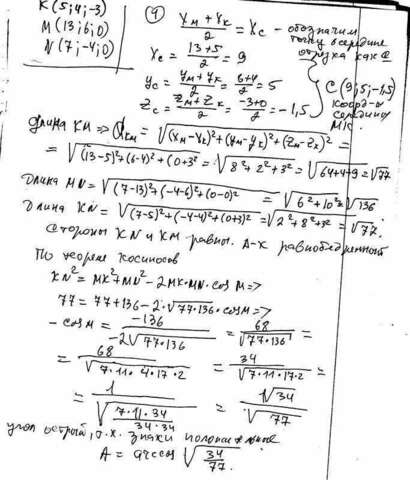 K(5;4;-3)
M(13;6;0)
N(7;-4;0)
④ (Xм + Xк)/2 = Xc - обозначим
точку в середине
отрезка как C
Xc = (13+5)/2 = 9
Yc = (Yм+Yк)/2 = (6+4)/2 = 5
Zc = (Zм+Zк)/2 = (-3+0)/2 = -1,5
C(9;5;-1,5)
коорд-ы
середины
MK
Длина KM => dкм = √((Xм-Xк)²+(Yм-Yк)²+(Zм-Zк)²) =
= √((13-5)²+(6-4)²+(0+3)²) = √(8²+2²+3²) = √(64+4+9) = √77
Длина MN = √((7-13)²+(-4-6)²+(0-0)²) = √(6²+10²) = √136
Длина KN = √((7-5)²+(-4-4)²+(0+3)²) = √(2²+8²+3²) = √77.
Стороны KN и KM равны. Δ-к равнобедренный
По теореме косинусов
KN² = MK²+MN²-2MK·MN·cos M =>
77 = 77+136-2·√(77·136)·cos M =>
-cos M = -136/(-2√(77·136)) = 68/√(77·136) =
= 68/√(7·11·4·17·2) = 34/√(7·11·17·2) =
= 1/√((7·11·34)/(34·34)) = √34/√77
угол острый, т.к. знаки положительные
A = arccos √(34/77).